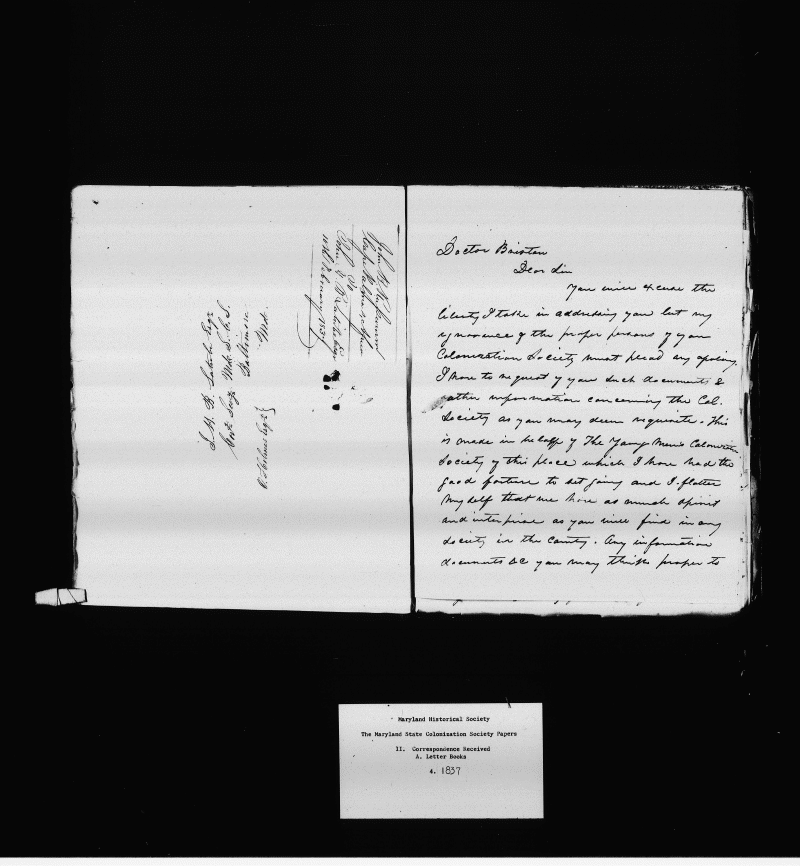 J. H. B. Latrobe Esqr
Cor. Secy Md. S. C. S.
Baltimore
Md.
John B. Russwurm
No
John H. B. Latrobe Esq
February 1837
Doctor
Dear Sir
You will excuse the
liberty I take in addressing you but my
ignorance of the proper persons of your
Colonization Society must plead my apology.
I have to request of you such documents &
other information concerning the Col.
Society as you may deem requisite. This
is made in behalf of The Young Men's Colonization
Society of this place which I have had the
good fortune to set going and I flatter
myself that we have as much spirit
and interprise as you will find in any
society in the County. Any information
documents &c you may think proper to
Maryland Historical Society
The Maryland State Colonization Society Papers
II. Correspondence Received
A. Letter Books
4. 1837